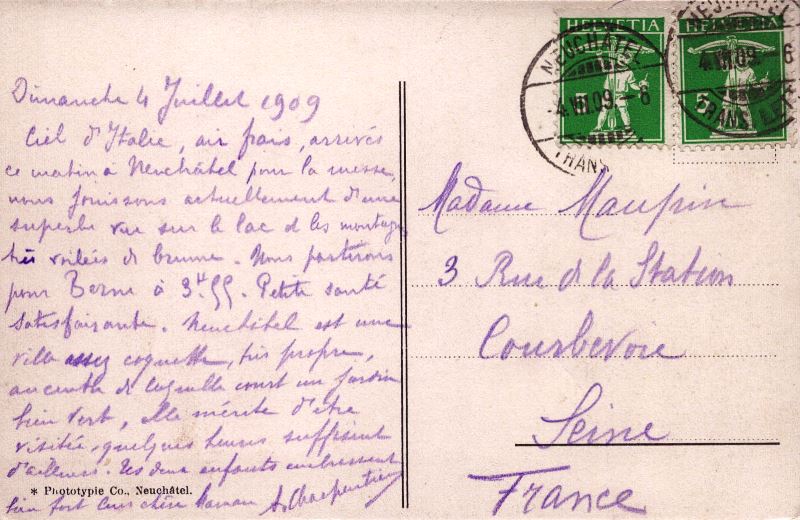 Dimanche 4 Juillet 1909
Ciel d'Italie, air frais, arrivés
ce matin à Neuchâtel pour la messe,
nous jouissons actuellement d'une
superbe vue sur le lac et les montagnes
très voilées de brume. Nous partirons
pour Berne à 3h.55. Petite santé
satisfaisante. Neuchâtel est une
ville assez coquette, très propre,
au centre de laquelle court un jardin
bien vert, elle mérite d'être
visitée, quelques heures suffisent
d'ailleurs. Tes deux enfants embrassent
bien fort leur chère Maman A. Charpentier
* Phototypie Co., Neuchâtel.
HELVETIA
5
HELVETIA
5
NEUCHÂTEL
-4.VII.09.-6
TRANS
NEUCHÂTEL
4.VII.09.-6
TRANS. LET
Madame Maupin
3 Rue de la Station
Courbevoie
Seine
France